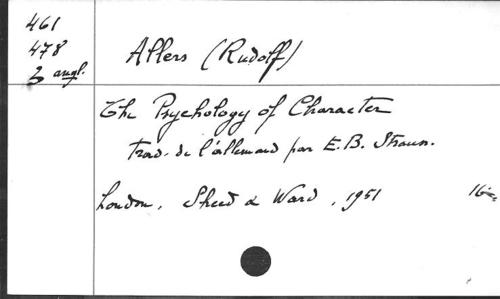 461
478
3 angl.
Allers (Rudolf)
The Psychology of Character
Trad. de l'allemand par E.B. Strauss.
London, Sheed & Ward, 1951 16°